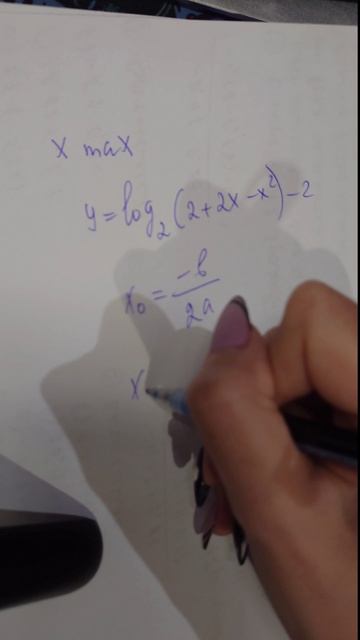 x max
y = log₂(2+2x-x²)-2
x₀ = -b/2a
x